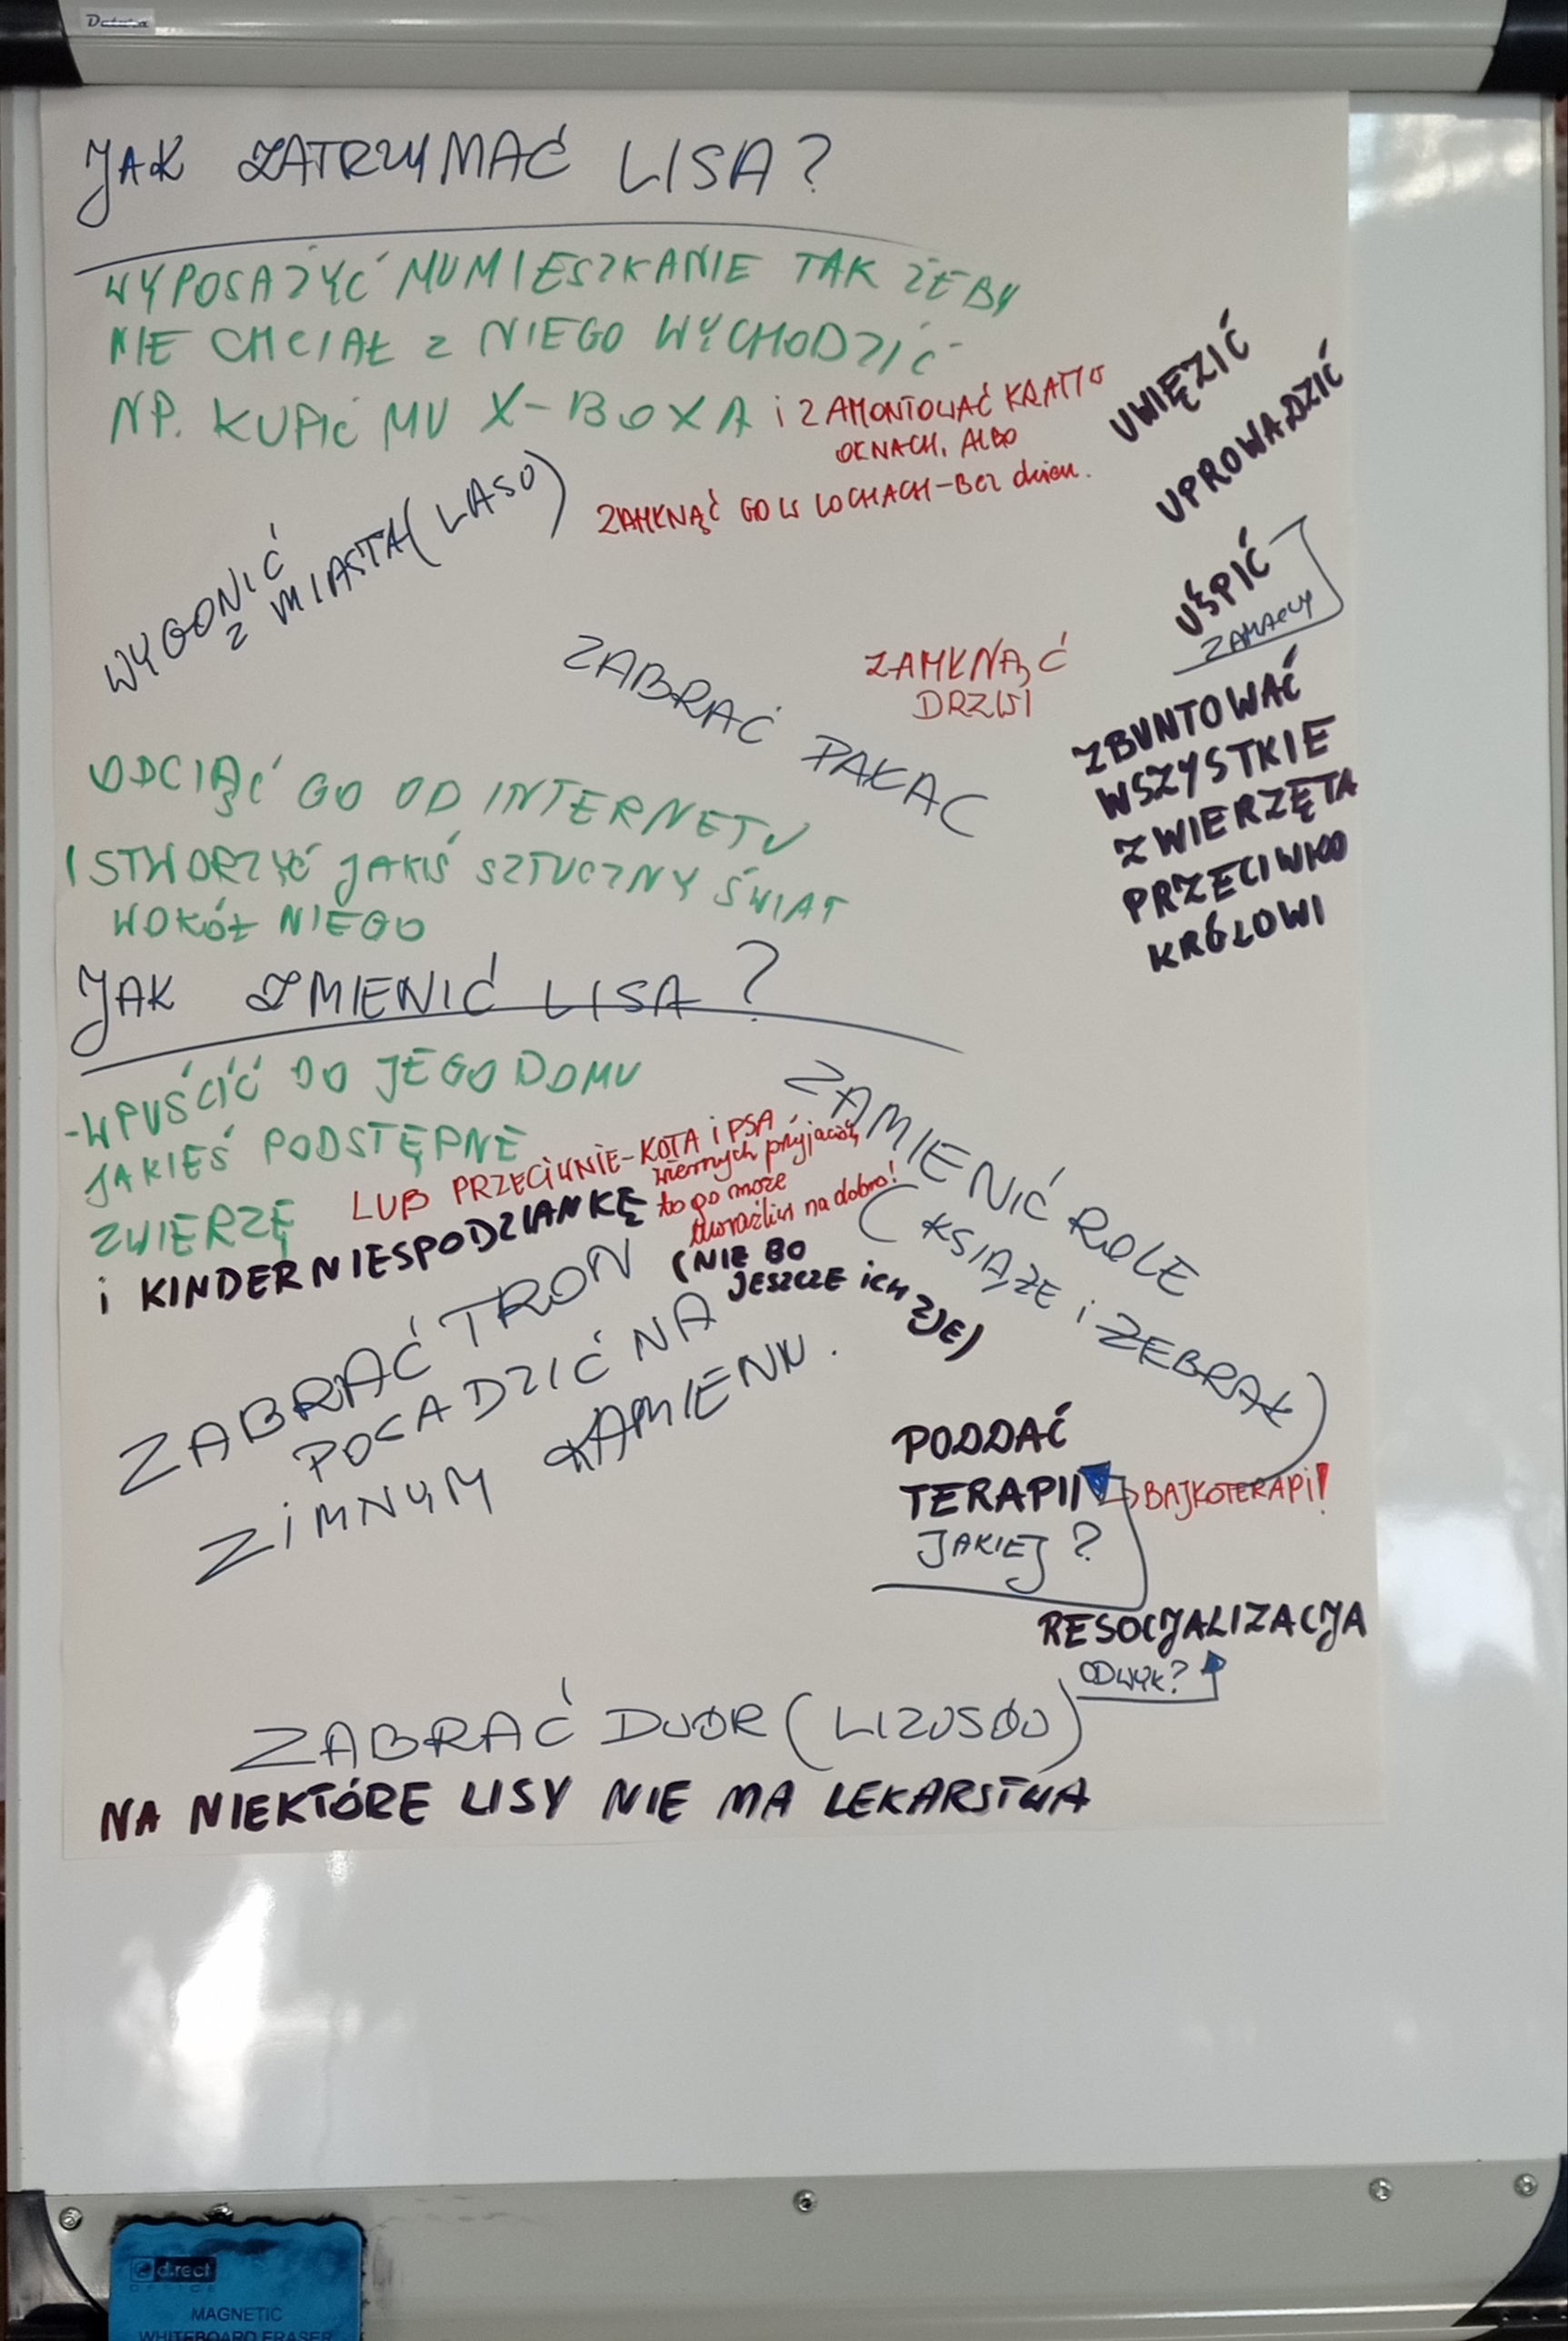 JAK ZATRZYMAĆ LISA?
WYPOSAŻYĆ MU MIESZKANIE TAK ŻEBY
NIE CHCIAŁ Z NIEGO WYCHODZIĆ
NP. KUPIĆ MU X-BOXA i ZAMONTOWAĆ KRATY W
OKNACH, ALBO
ZAMKNĄĆ GO W LOCHACH-BEZ drzwi.
UWIĘZIĆ
UPROWADZIĆ
UŚPIĆ
ZAMACHY
WYGONIĆ
Z MIASTA (LASO)
ZABRAĆ PAŁAC
ZAMKNĄĆ
DRZWI
ZBUNTOWAĆ
WSZYSTKIE
ZWIERZĘTA
PRZECIWKO
KRÓLOWI
ODCIĄĆ GO OD INTERNETU
I STWORZYĆ JAKIŚ SZTUCZNY ŚWIAT
WOKÓŁ NIEGO
JAK ZMIENIĆ LISA?
-WPUŚCIĆ DO JEGO DOMU
JAKIEŚ PODSTĘPNE
ZWIERZĘ
LUB PRZECIWNIE-KOTA i PSA,
wiernych przyjaciół,
to go może
uwrażliwi na dobro!
i KINDERNIESPODZIANKĘ
(NIE BO
JESZCZE ICH ZJE)
ZAMIENIĆ ROLE
(KSIĄŻE i ŻEBRAK)
ZABRAĆ TRON
POSADZIĆ NA
ZIMNYM KAMIENIU.
PODDAĆ
TERAPII
BAJKOTERAPI!
JAKIEJ?
RESOCJALIZACJA
ODWYK?
ZABRAĆ DWÓR (LIZUSÓW)
NA NIEKTÓRE LISY NIE MA LEKARSTWA
d.rect
OFFICE
MAGNETIC
WHITEBOARD ERASER